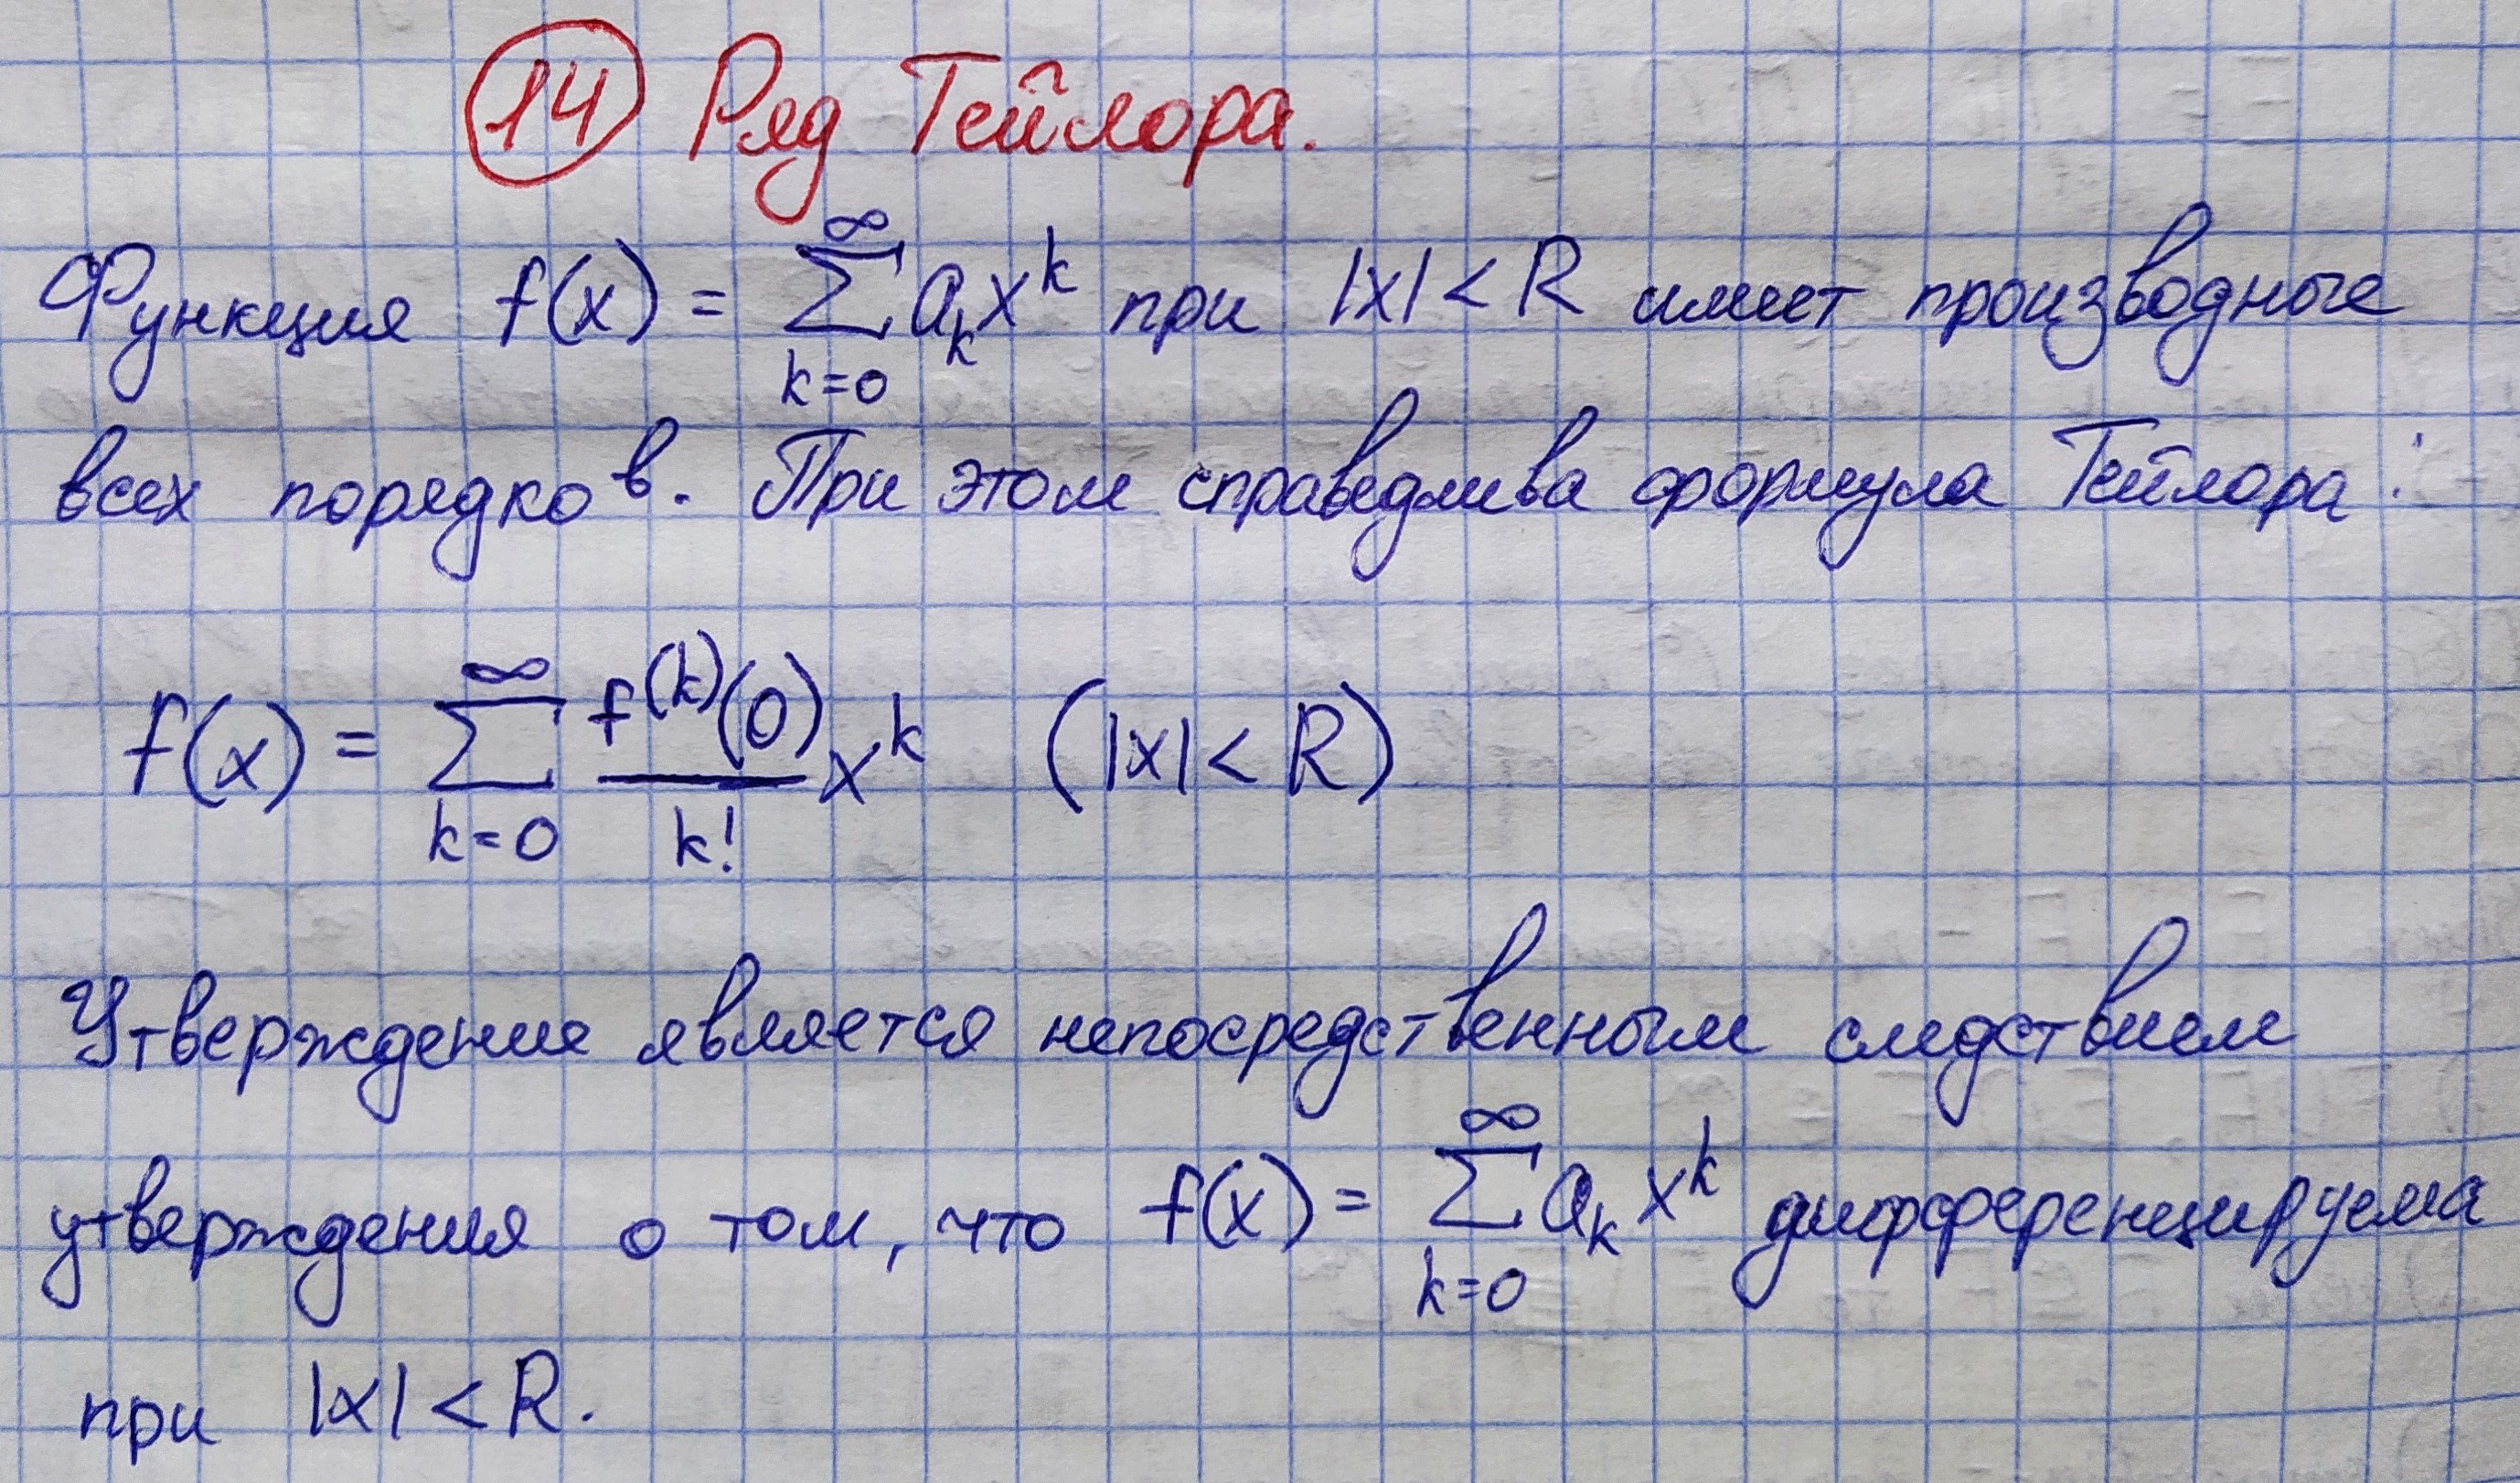 14 Ряд Тейлора.
Функция f(x) = ∑_{k=0}^{∞} a_k x^k при |x| < R имеет производные
всех порядков. При этом справедлива формула Тейлора:
f(x) = ∑_{k=0}^{∞} \frac{f^{(k)}(0)}{k!} x^k (|x| < R)
Утверждение является непосредственным следствием
утверждения о том, что f(x) = ∑_{k=0}^{∞} a_k x^k дифференцируема
при |x| < R.